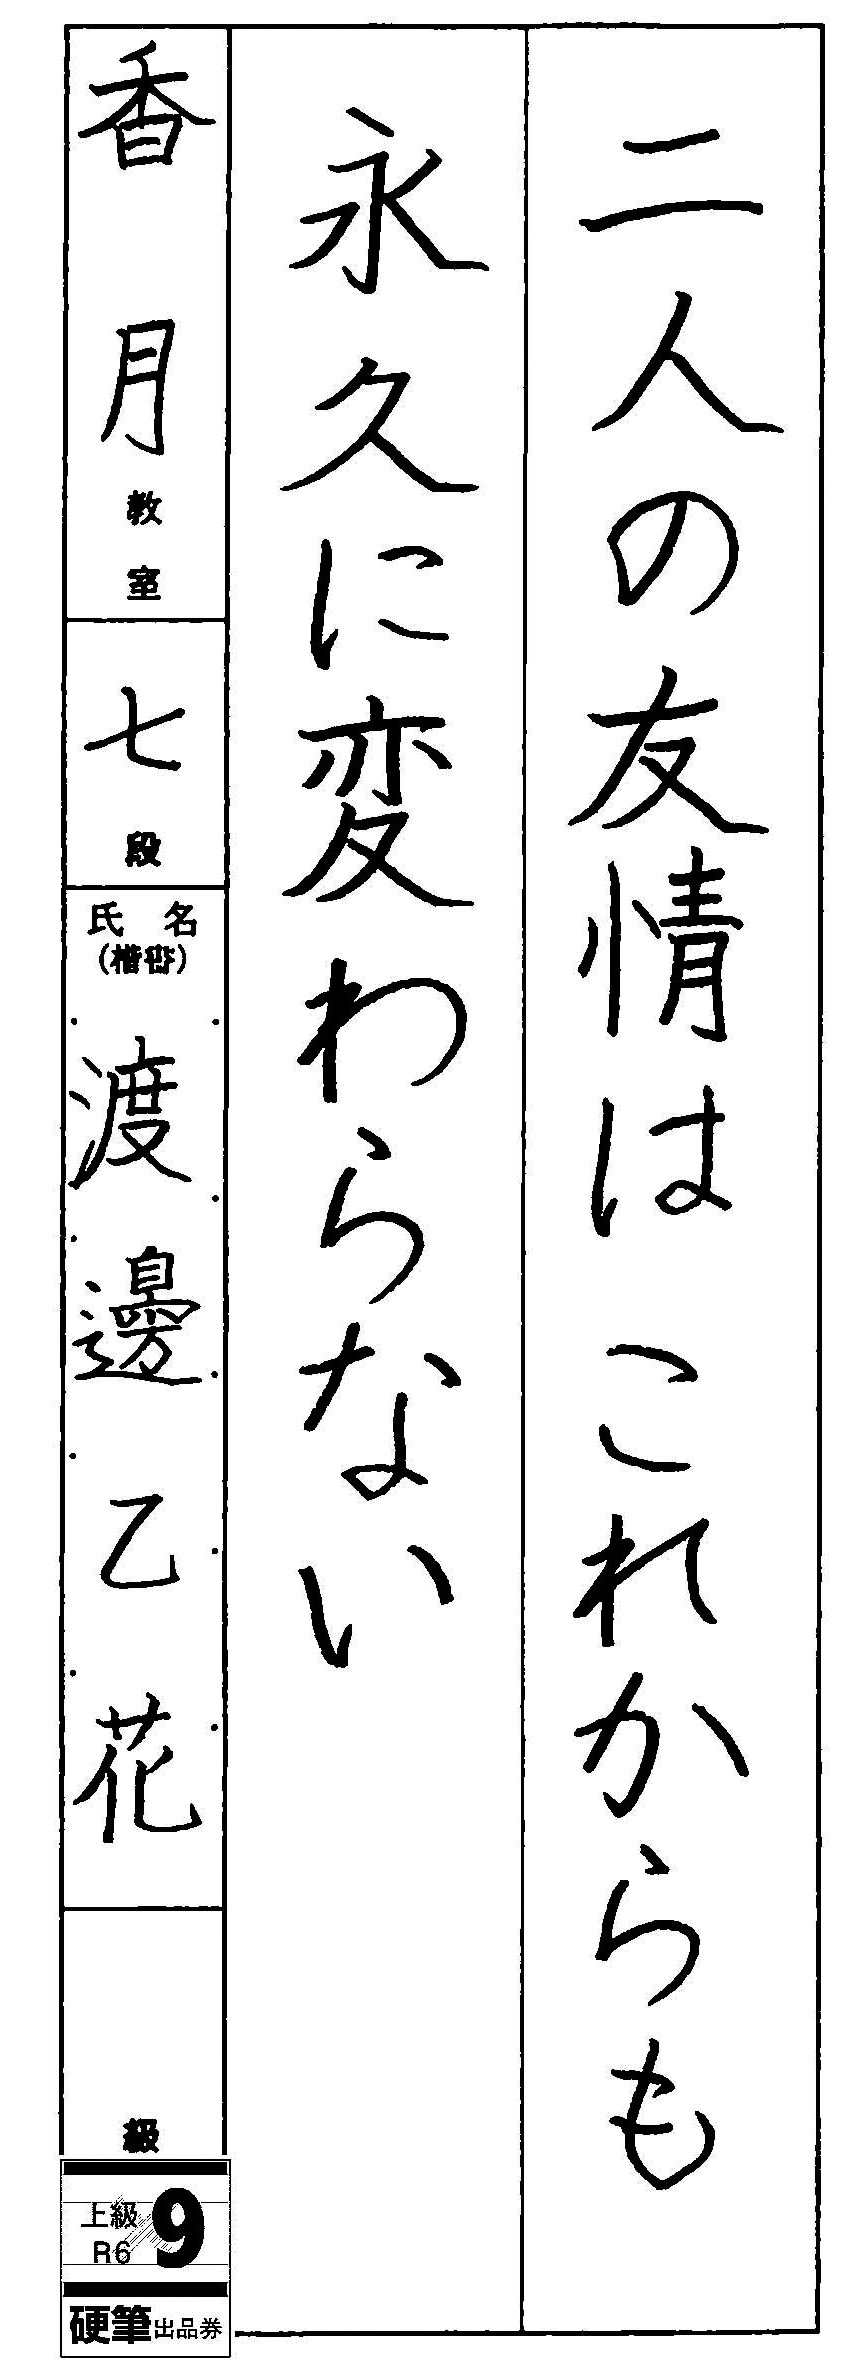 二人の友情はこれからも
永久に変わらない
香月教室
七段
氏名
(楷書)
渡邊乙花
級
上級
R6
9
硬筆出品券